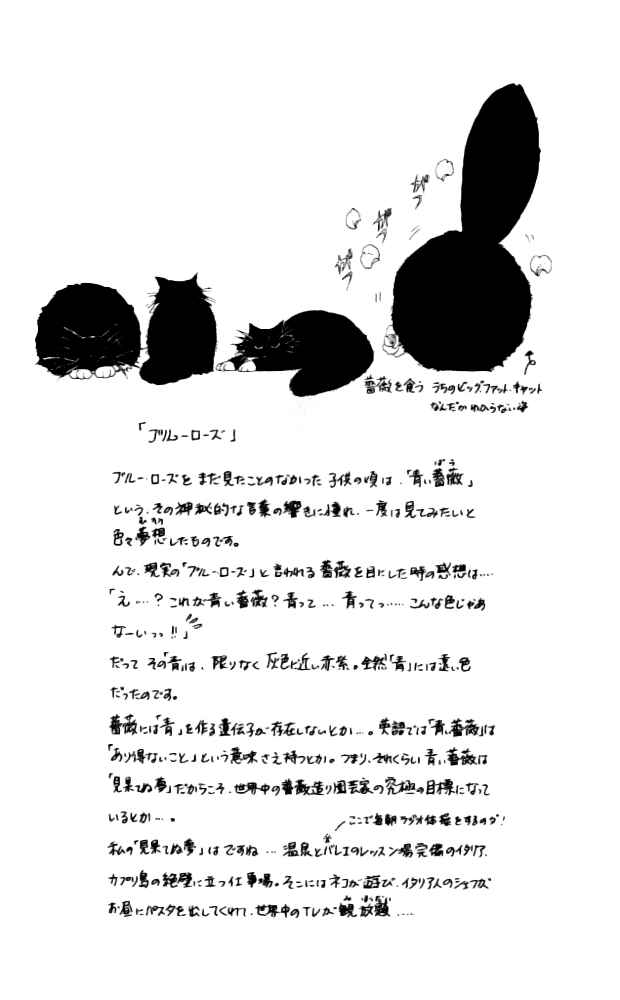 ガブッ
ガブッ
ガブッ
薔薇を食う うちのビッグ.ファット.キャット
なんだかわからない
「ブルーローズ」
ブルー.ローズをまだ見たことのなかった子供の頃は、「青い薔薇」
ばら
という、その神秘的な言葉の響きに憧れ、一度は見てみたいと
色々夢想したものです。
むそう
んで、現実の「ブルーローズ」と言われる薔薇を目にした時の感想は‥‥
「え‥‥?これが青い薔薇?青って‥‥青ってっ‥‥‥こんな色じゃあ
なーいっっ!!」
だってその「青」は、限りなく灰色に近い赤紫。全然「青」には遠い色
だったのです。
薔薇には「青」を作る遺伝子が存在しないとか‥‥。英語では「青い薔薇」は
「あり得ないこと」という意味さえ持つとか。つまり、それくらい青い薔薇は
「見果てぬ夢」だからこそ、世界中の薔薇造り園芸家の究極の目標になって
いるとか‥‥。
ここで毎朝ラジオ体操をするのダ!
私の「見果てぬ夢」はですね‥‥温泉とバレエのレッスン場完備のイタリア、
カプリ島の絶壁に立つ仕事場。そこにはネコが遊び、イタリア人のシェフが
お昼にパスタを出してくれて、世界中のTVが観放題‥‥
み ほうだい